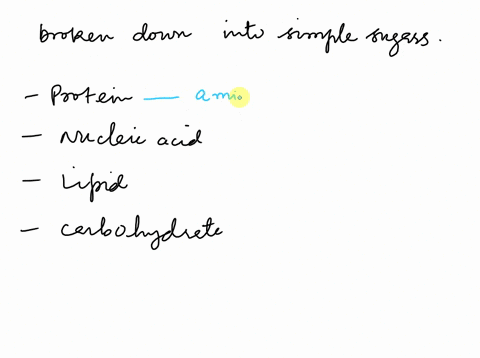 broken down into simple sugars.
- Protein — amio
- Nucleic acid
- Lipid
- Carbohydrate